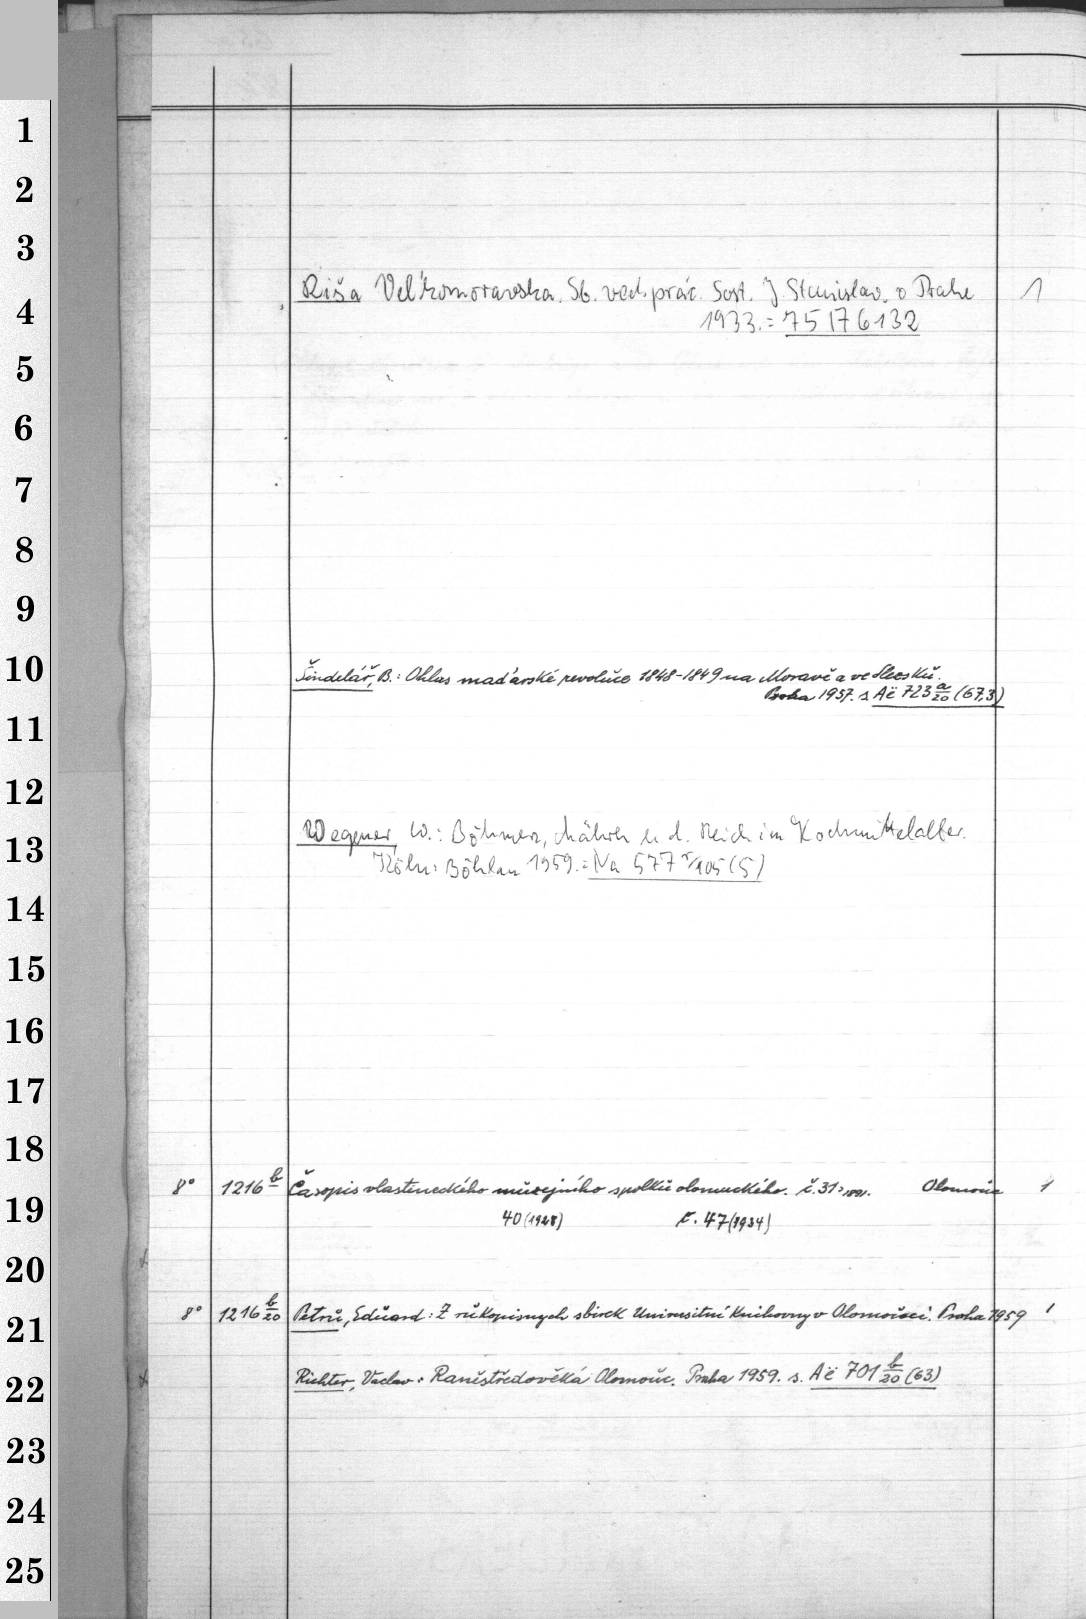 1
2
3
4
5
6
7
8
9
10
11
12
13
14
15
16
17
18
19
20
21
22
23
24
25
Riša Vel'komoravska. Sb. ved. prác. Sost. J. Stanislav. v Prahe 1
1933. = 75 176132
Šindelář, B.: Ohlas maďarské revoluce 1848-1849 na Moravě a ve Slezsku.
Praha 1957. s. Ač 723 a/20 (67,3)
Wegener, W.: Böhmen, Mähren u. d. Reich im Hochmittelalter.
Köln: Böhlau 1959. = Na 577 r/105 (5)
8° 1216 b Časopis vlasteneckého musejního spolku olomuckého. č. 31, 1891. Olomouc 1
40 (1928) č. 47 (1934)
8° 1216 b/20 Petrů, Eduard: Z rukopisných sbírek Universitní Knihovny v Olomouci. Praha 1959 1
Richter, Václav: Raněstředověká Olomouc. Praha 1959. s. Ač 701 b/20 (63)